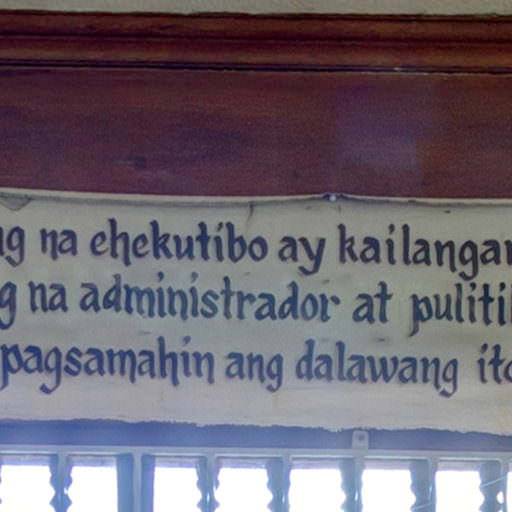 na ehekutibo ay kailangan
na administrador at
pagsamahin ang dalawang